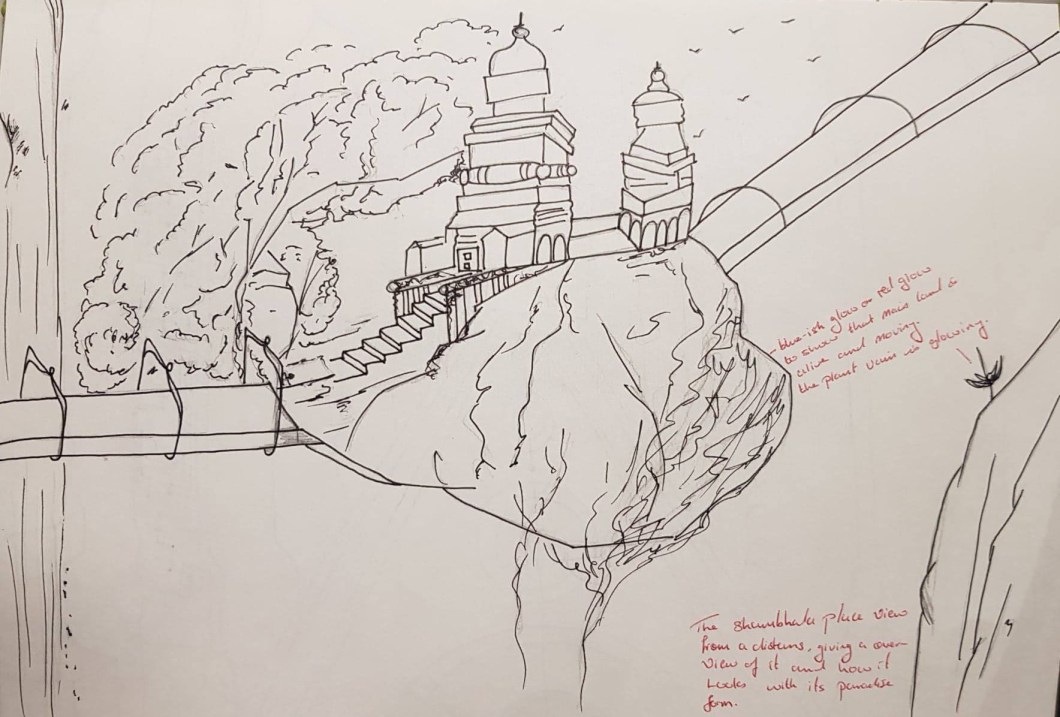 blue-ish glow or red glow
to show that mass land is
alive and moving.
the plant vain is glowing.
The shambhala place view
from a distans, giving a over
view of it and how it
Looks with its paradise
form.